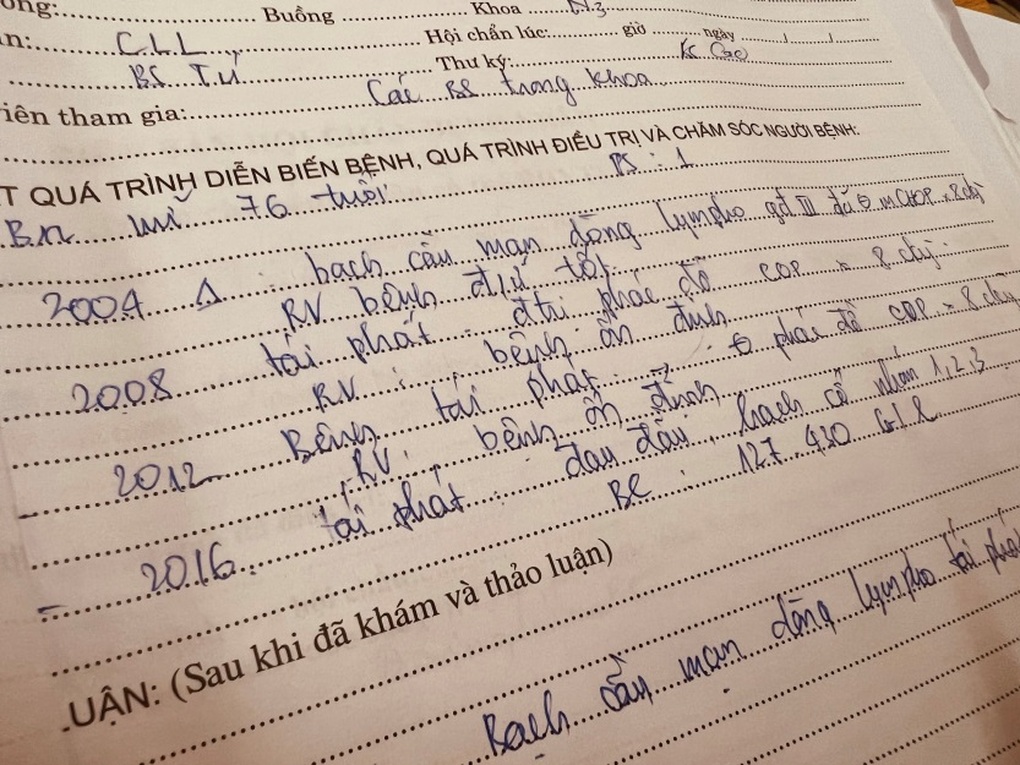 ông: Buồng Khoa N3
n: CLL Hội chẩn lúc: giờ ngày / /
BS Tú Thư ký:
iên tham gia: Các BS trong khoa
T QUÁ TRÌNH DIỄN BIẾN BỆNH, QUÁ TRÌNH ĐIỀU TRỊ VÀ CHĂM SÓC NGƯỜI BỆNH:
Bn nữ 76 tuổi PS: 1
2004 Δ: bạch cầu mạn dòng lympho gđ III đã mCHOP x 8 ckỳ
RV bệnh đ/ư tốt
2008 tái phát đtrị phác đồ COP x 8 ckỳ
RV: bệnh ổn định
2012 Bệnh tái phát phác đồ COP x 8 ckỳ
RV: bệnh ổn định
- 2016: tái phát: đau đầu, hạch cổ nhóm 1,2,3
BC: 127.430 G/L
UẬN: (Sau khi đã khám và thảo luận)
Bạch cầu mạn dòng lympho tái phát